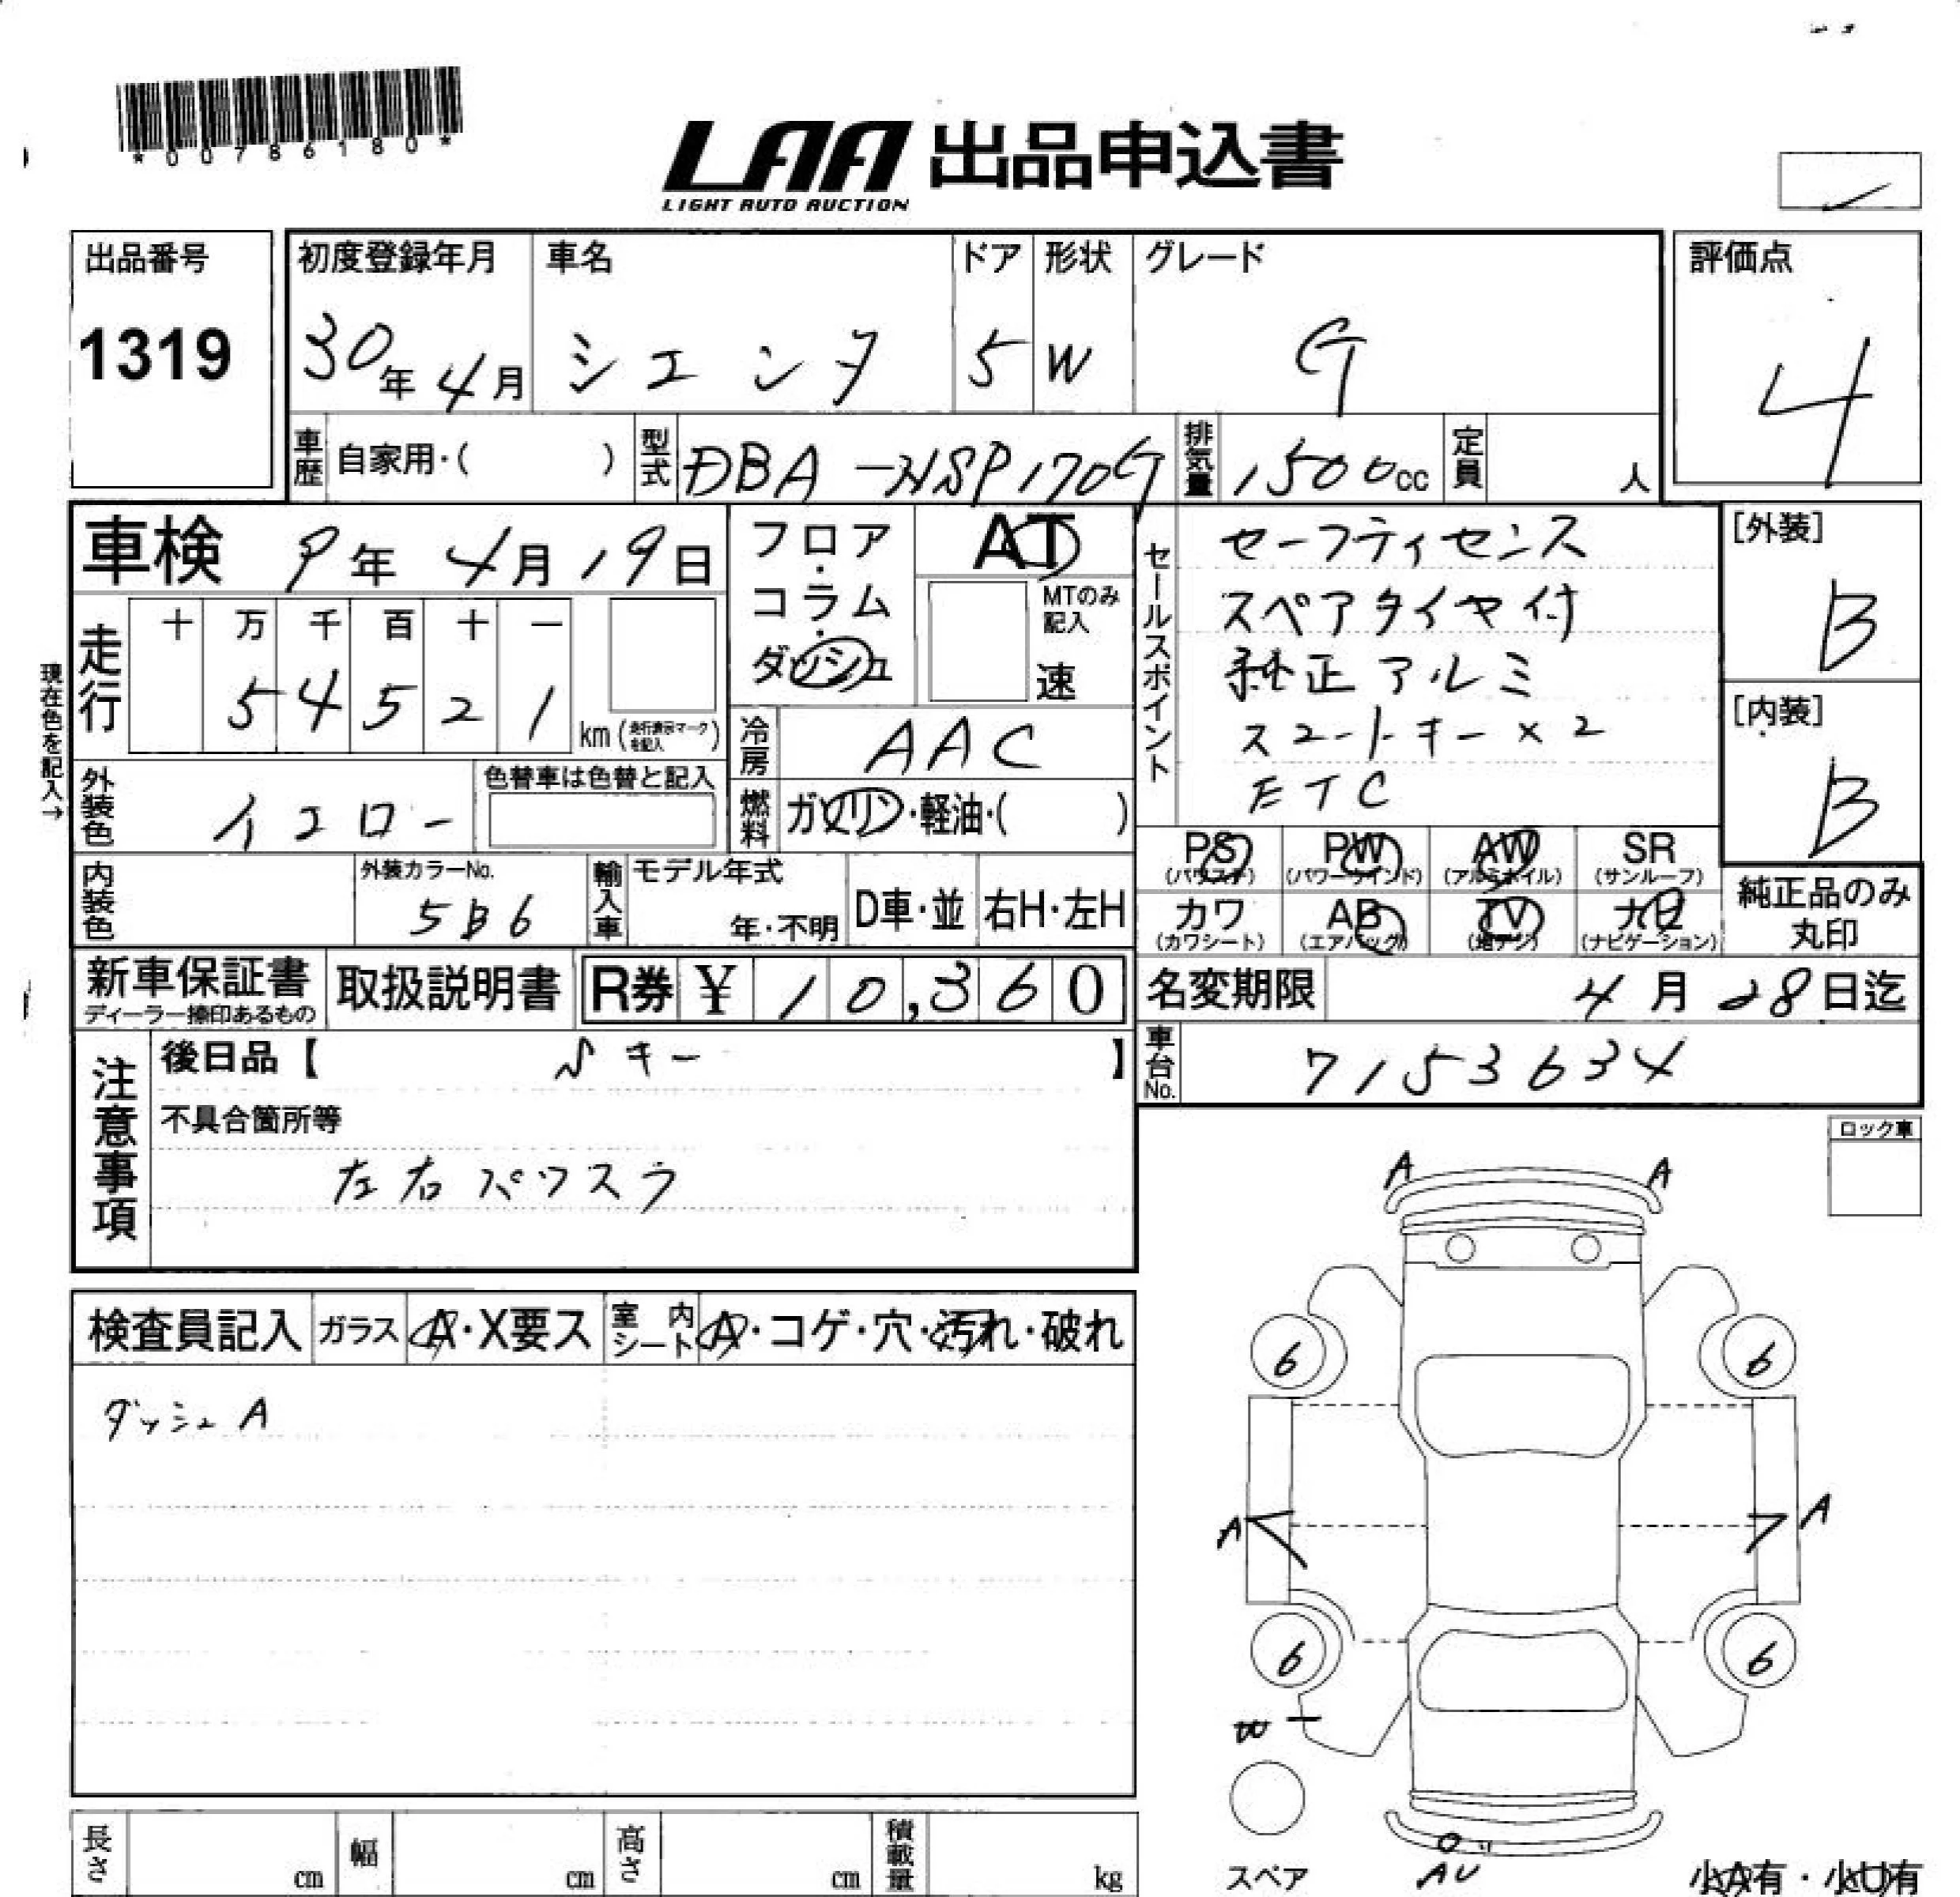 *00786180*
LAA 出品申込書
LIGHT AUTO AUCTION
出品番号 1319
初度登録年月 30年4月
車名 シエンタ
ドア 5
形状 W
グレード G
評価点 4
車歴 自家用・( )
型式 DBA-NSP170G
排気量 1500cc
定員 人
車検 9年4月19日
フロア・コラム・ダッシュ
AT
MTのみ記入
速
セールスポイント
セーフティセンス
スペアタイヤ付
純正アルミ
スマートキー×2
ETC
[外装] B
[内装] B
現在色を記入→
走行 十 万 千 百 十 一
54521
km(走行表示マークを記入)
冷房 AAC
外装色 イエロー
色替車は色替と記入
燃料 ガソリン・軽油・( )
内装色
外装カラーNo. 5B6
輸入車 モデル年式 年・不明
D車・並
右H・左H
PS (パワステ)
PW (パワーウインド)
AW (アルミホイル)
SR (サンルーフ)
カワ (カワシート)
AB (エアバッグ)
TV (地デジ)
ナビ (ナビゲーション)
純正品のみ丸印
新車保証書
ディーラー捺印あるもの
取扱説明書
R券 ¥10,360
名変期限 4月28日迄
車台No. 7153634
注意事項
後日品【 キー 】
不具合箇所等
左右パワスラ
ロック車
検査員記入
ガラス A・X要ス
室内シート A・コゲ・穴・汚れ・破れ
ダッシュA
A A
6 6
A A
6 6
W
スペア
AU
小A有・小U有
長さ cm
幅 cm
高さ cm
積載量 kg